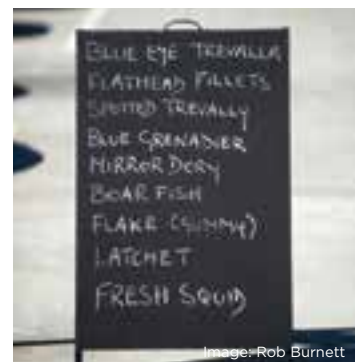 BLUE EYE TREVALLA
FLATHEAD FILLETS
SPOTTED TREVALLY
BLUE GRENADIER
MIRROR DORY
BOAR FISH
FLAKE (GUMMY)
LATCHET
FRESH SQUID
Image: Rob Burnett